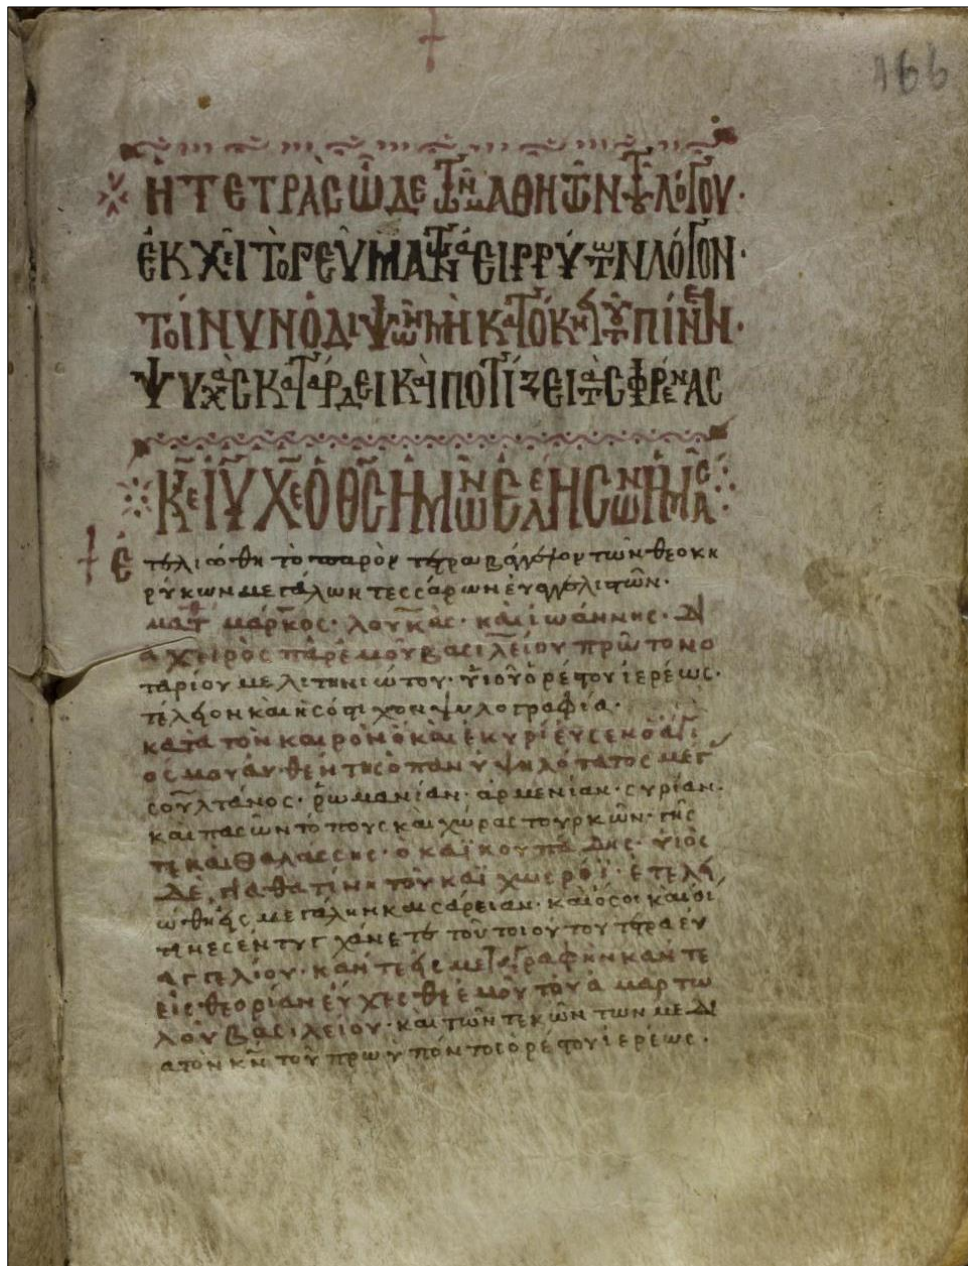 166
Ἡ ΤΕΤΡᾺΣ ὯΔΕ ΤῶΝ ΜΑΘΗΤῶΝ ΤΟΥ ΛΌΓΟΥ·
ἘΚΧΕῖ ΤῸ ΡΕῦΜΑ ΤῶΝ ἈΕΙΡΡΎΤΩΝ ΛΌΓΩΝ·
ΤΟΊΝΥΝ Ὁ ΔΙΨῶΝ ΜῊ ΚΑΤΟΚΝΕΊΤΩ ΠΊΝΕΙΝ·
ΨΥΧᾺΣ ΚΑΤΆΡΔΕΙ ΚΑῚ ΠΟΤΊΖΕΙ ΤᾺΣ ΦΡΈΝΑΣ
ΚΕ ΙΥ ΧΕ Ὁ ΘΣ ἩΜῶΝ ἘΛΕΗΣΩΝ ἩΜΑΣ
ἐτελιόθη τὸ παρὸν τέτρωβάγγελον τῶν θεοκη
ρύκων μεγάλων τεσσάρων εὐαγγελιστῶν·
ματ μάρκος· λουκᾶς· καὶ ἰωάννης· δι
α χειρὸς παρ' ἐμοῦ βασιλείου πρωτονο
ταρίου μελιτηνιώτου· υἱοῦ ὀρέστου ἱερέως·
τέλειον καὶ ἠσόστιχον ψυλογραφία·
κατὰ τὸν καιρὸν ὁ καὶ ἐκυρίευσεν ὁ ἅγι
ος μου αὐθέντης ὁ πανυψηλότατος μέγ
σουλτάνος· ῥωμανίαν· ἀρμενίαν· συρίαν·
καὶ πασῶν τόπους καὶ χώρας τουρκῶν· γῆς
τε καὶ θαλάσσης· ὁ καϊκουπάδης· υἱὸς
δὲ γιαθατίνη τοῦ καϊχωσρόϊ· ἐτελει
ώθη εἰς μεγάλην καισάρειαν· καὶ ὅσοι καὶ οἵ
τινες ἐντυγχάνετε τοῦ τοιούτου τέτραευ
αγγελίου· κἄν τε εἰς μεταγραφὴν κἄν τε
εἰς θεορίαν εὔχεσθε ἐμοῦ τοῦ ἁμαρτω
λοῦ βασιλείου· καὶ τῶν τεκῶντων με δι
α τὸν κν τοῦ πρωϋπόντος ὀρέστου ἱερέως·